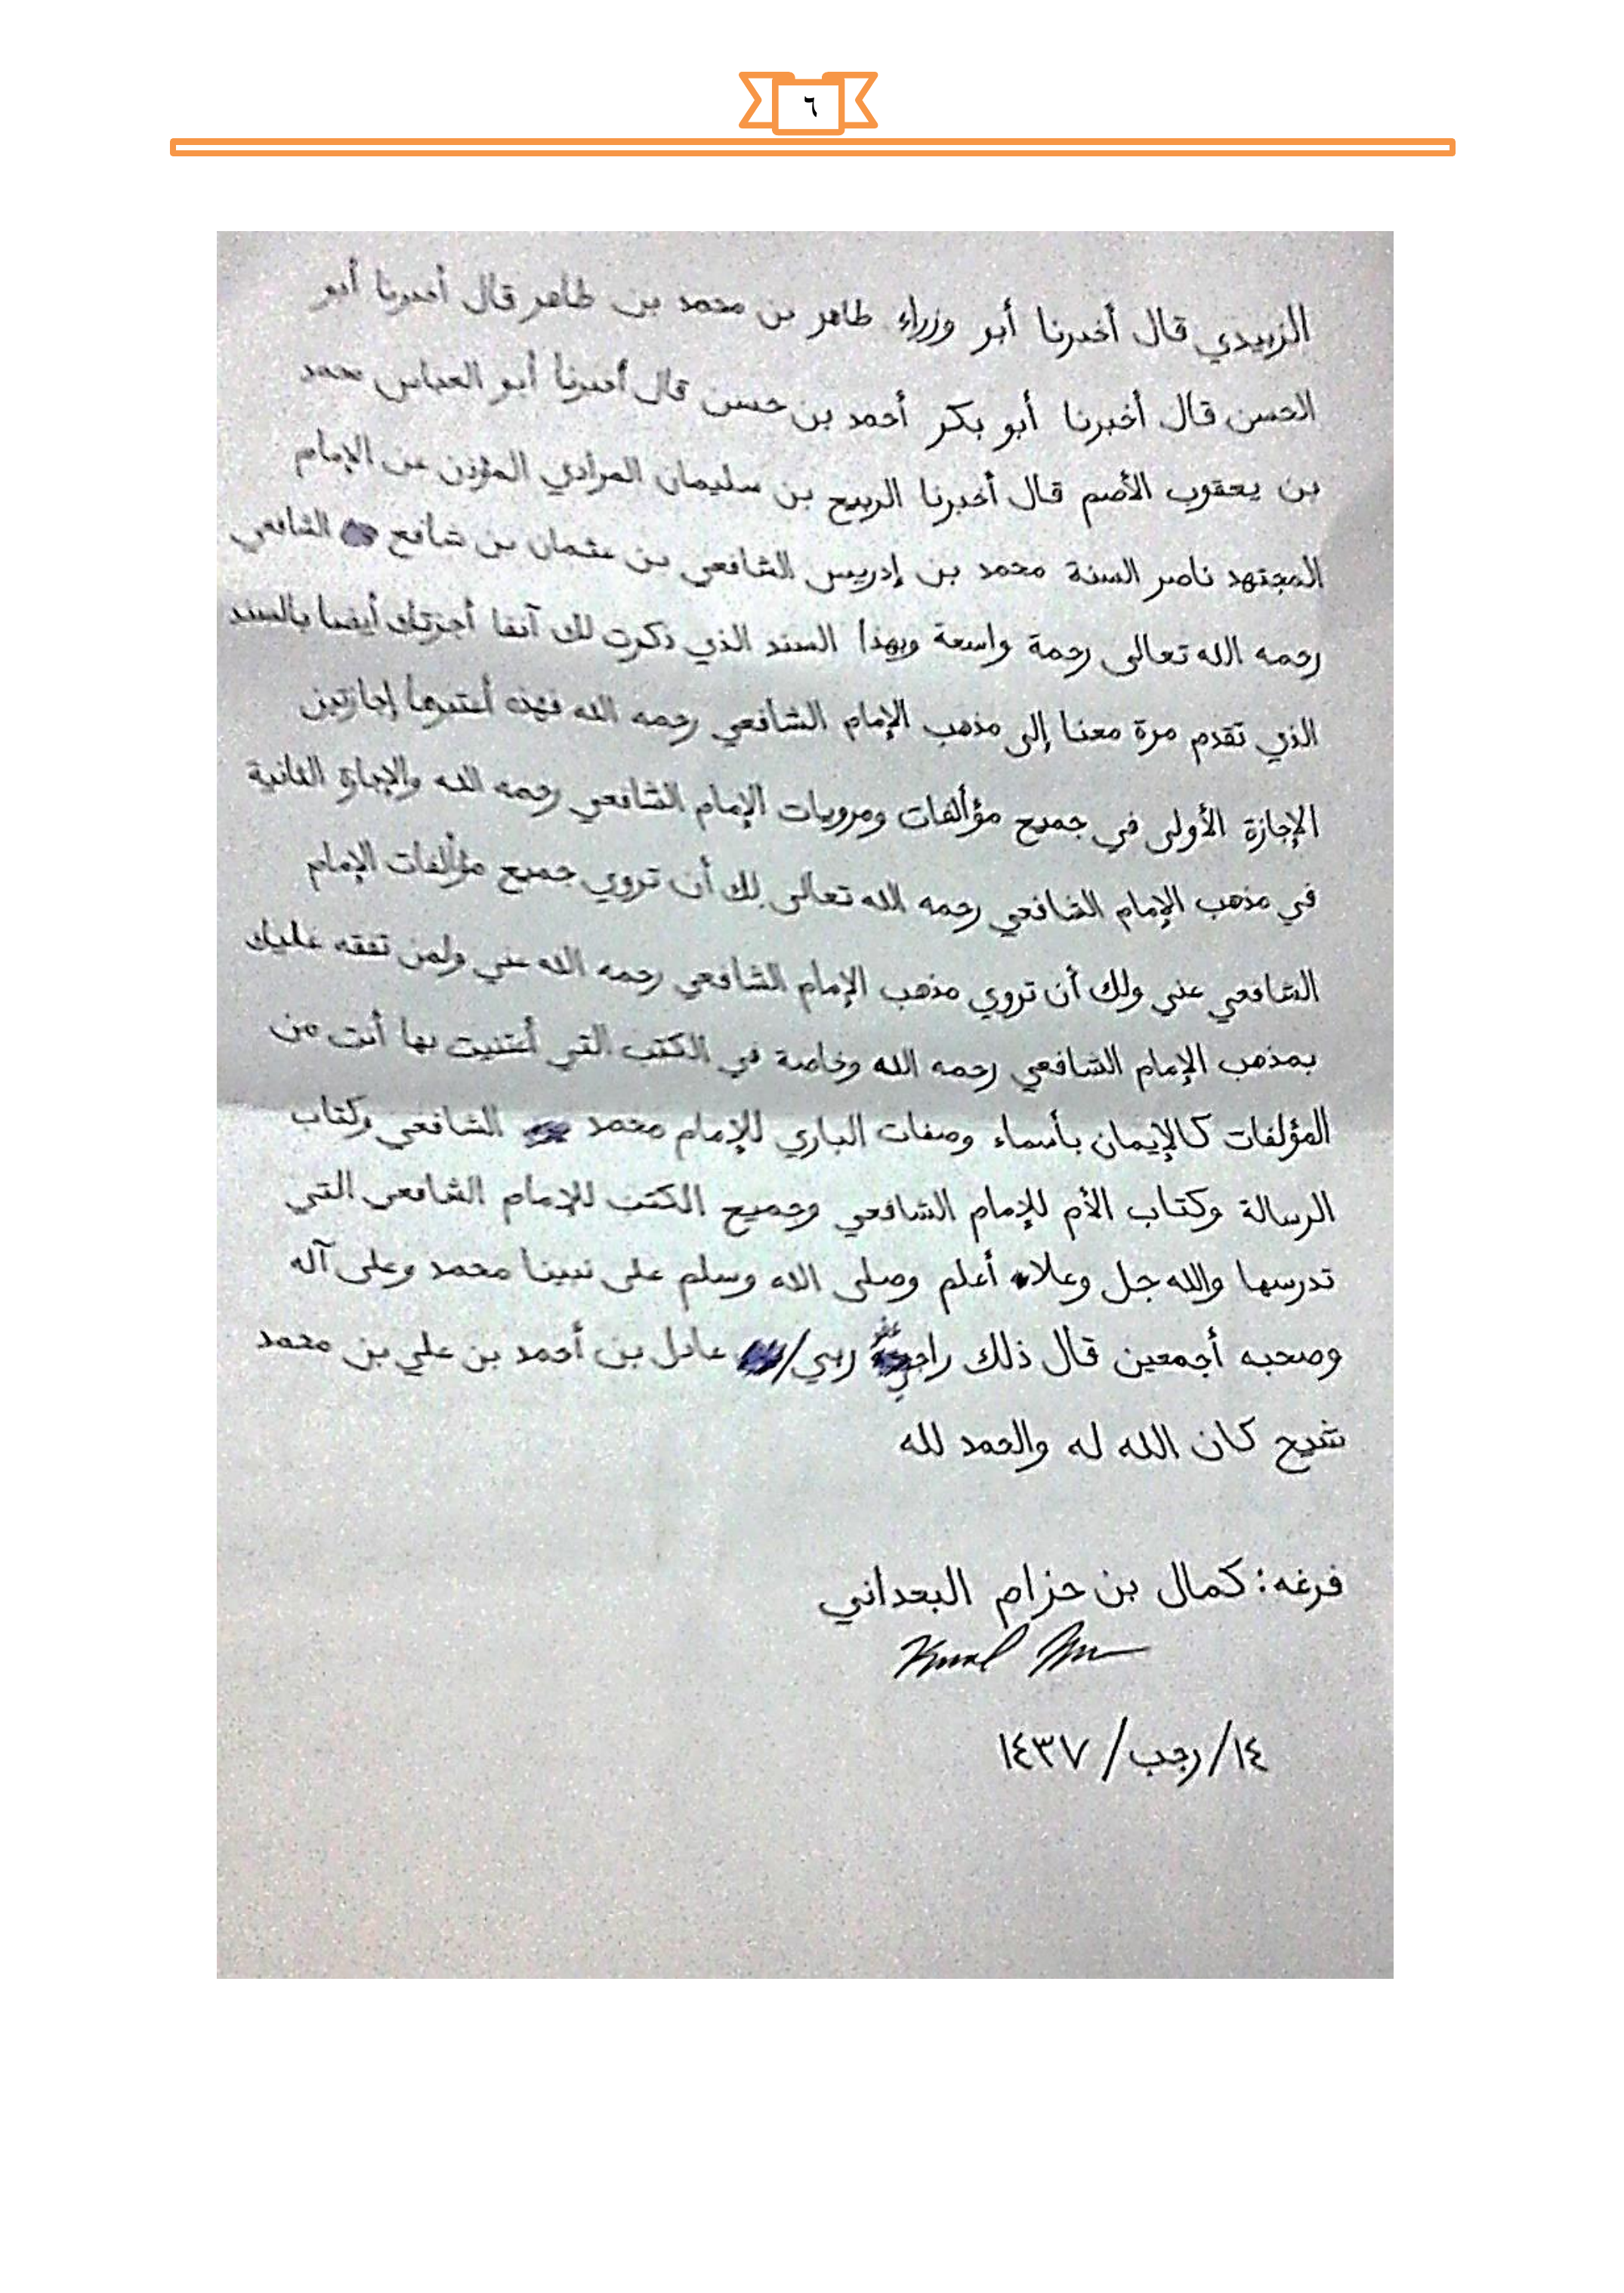 ٦
الزبيدي قال أخبرنا أبو وزراء طاهر بن محمد بن طاهر قال أخبرنا أبو
الحسن قال أخبرنا أبو بكر أحمد بن حسن قال أخبرنا أبو العباس محمد
بن يعقوب الأصم قال أخبرنا الربيع بن سليمان المرادي المؤذن عن الإمام
المجتهد ناصر السنة محمد بن إدريس الشافعي بن عثمان بن شافع الشافعي
رحمه الله تعالى رحمة واسعة وبهذا السند الذي ذكرت لك آنفا أجزتك أيضا بالسند
الذي تقدم مرة معنا إلى مذهب الإمام الشافعي رحمه الله فهذه أعتبرها إجازتين
الإجازة الأولى في جميع مؤلفات ومرويات الإمام الشافعي رحمه الله والإجازة الثانية
في مذهب الإمام الشافعي رحمه الله تعالى لك أن تروي جميع مؤلفات الإمام
الشافعي عني ولك أن تروي مذهب الإمام الشافعي رحمه الله عني ولمن تفقه عليك
بمذهب الإمام الشافعي رحمه الله وخاصة في الكتب التي أعتنيت بها أنت من
المؤلفات كالإيمان بأسماء وصفات الباري للإمام محمد الشافعي وكتاب
الرسالة وكتاب الأم للإمام الشافعي وجميع الكتب للإمام الشافعي التي
تدرسها والله جل وعلا أعلم وصلى الله وسلم على نبينا محمد وعلى آله
وصحبه أجمعين قال ذلك عادل بن أحمد بن علي بن محمد
شيح كان الله له والحمد لله
فرغه: كمال بن حزام البعداني
١٤/رجب/١٤٣٧